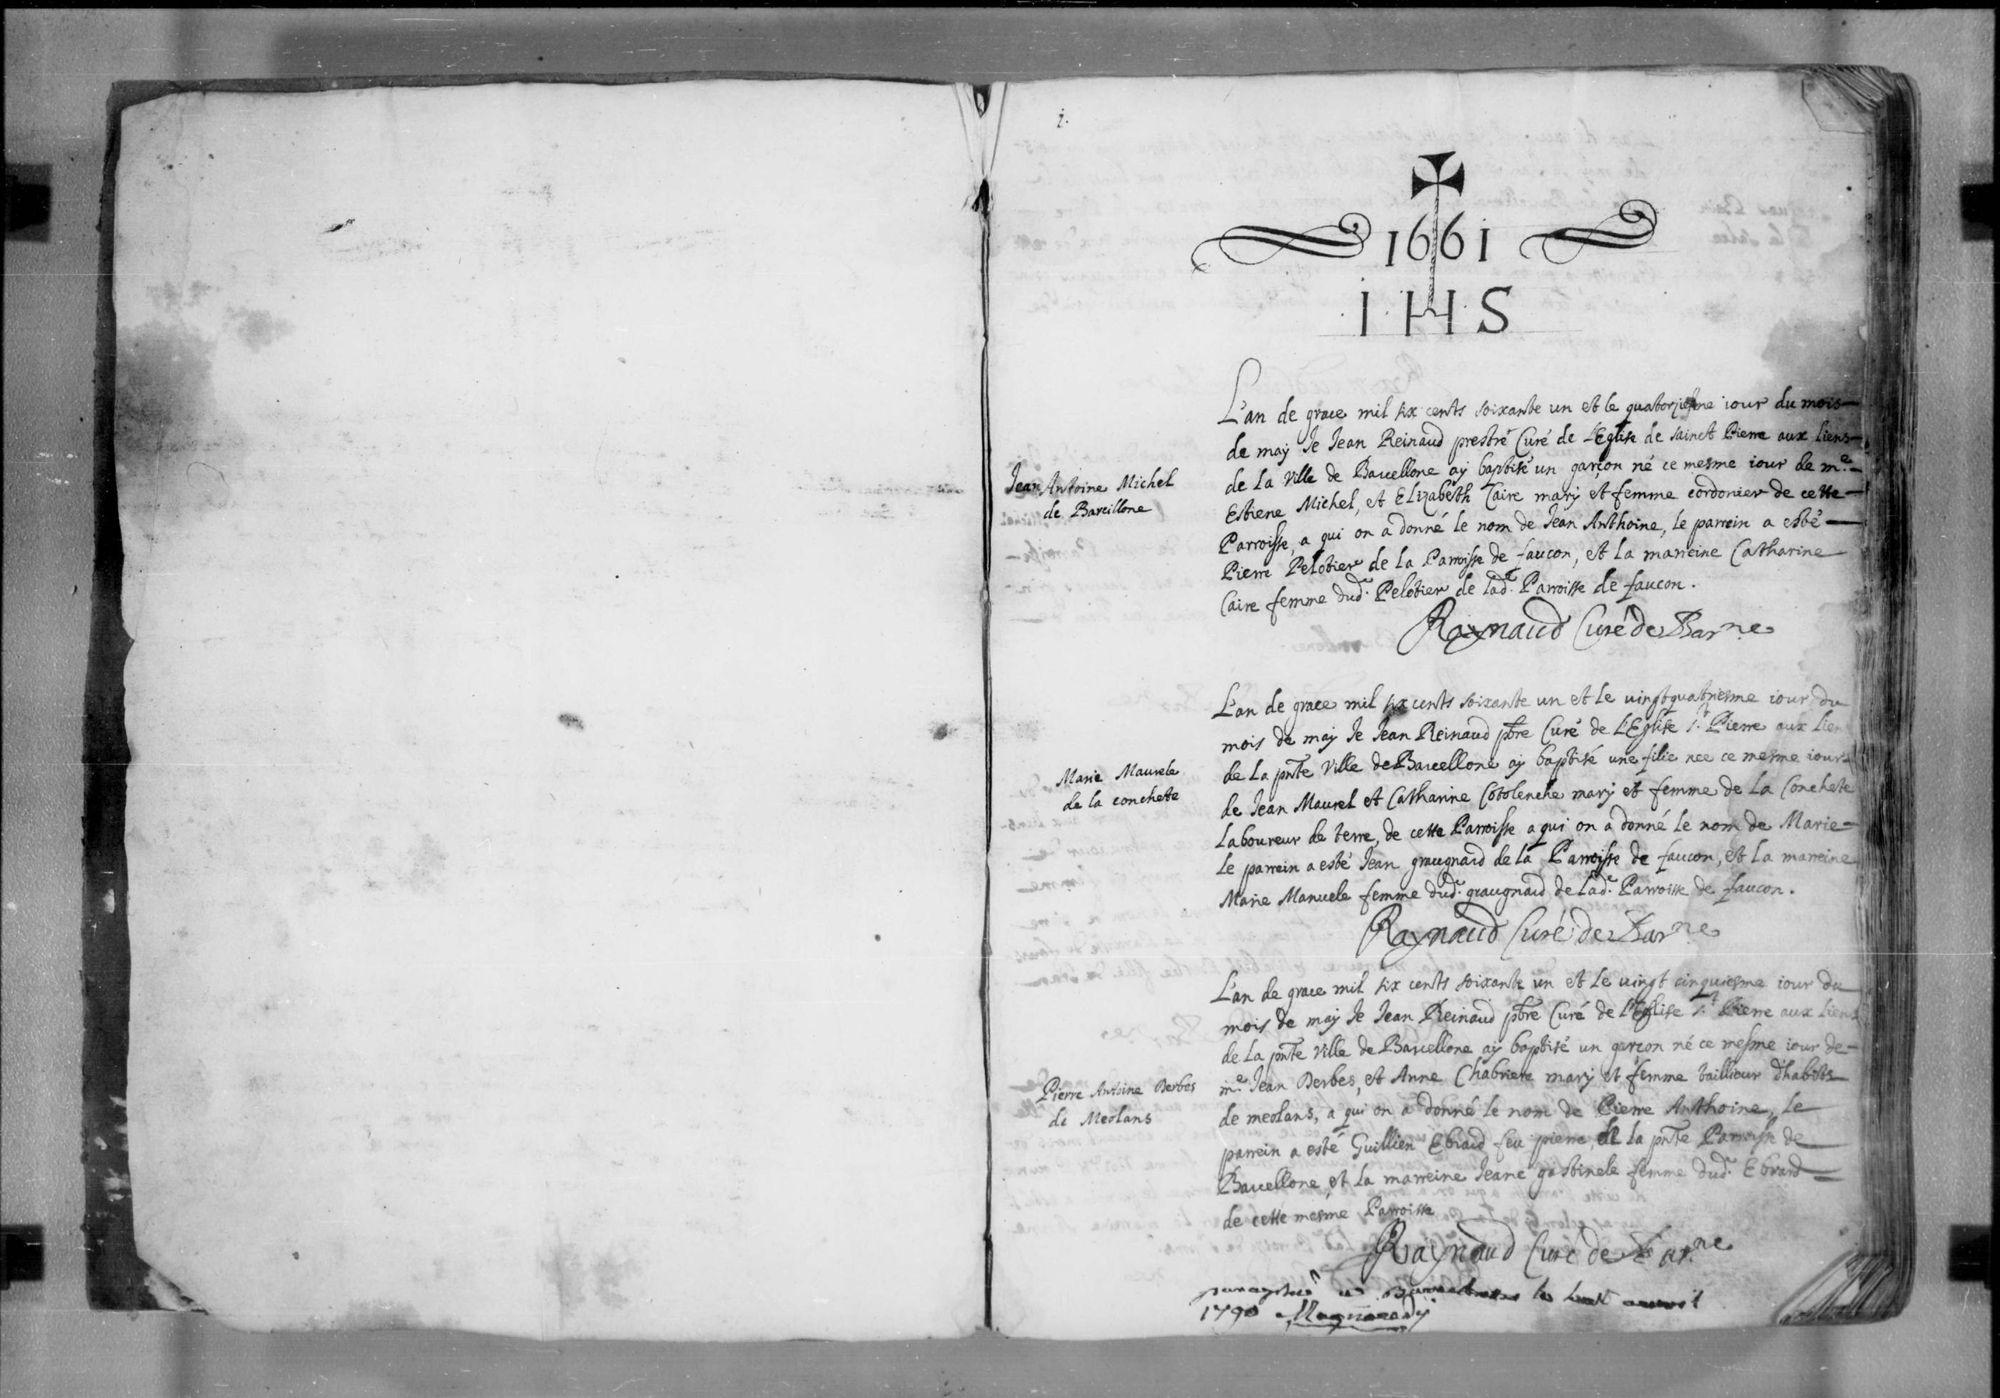 1.
1661
I H S
Jean Antoine Michel
de Barcillone
L'an de grace mil six cents soixante un et le quatorziesme iour du mois
de may Je Jean Reinaud prestre Curé de l'Eglise de sainct Pierre aux liens
de la ville de Barcellone ay baptisé un garçon né ce mesme iour de me
Estiene Michel, et Elizabeth Caire mary et femme cordonier de cette
Parroisse, a qui on a donné le nom de Jean Anthoine, le parrein a esté
Pierre Pelotier de la Parroisse de faucon, et la marreine Catharine
Caire femme dud. Pelotier de lade. Parroisse de faucon.
Raynaud Curé de Barne
Marie Maurele
de la conchete
L'an de grace mil six cents soixante un et le vingtquatriesme iour du
mois de may Je Jean Reinaud pbre Curé de l'Eglise St Pierre aux lien
de la pnte ville de Barcellone ay baptisé une filie nee ce mesme iour
de Jean Maurel et Catharine Cotolenche mary et femme de la Conchete
laboureur de terre, de cette Parroisse a qui on a donné le nom de Marie
le parrein a esté Jean graugnard de la Parroisse de faucon, et la marreine
Marie Manuele femme dud. graugnard de lade. Parroisse de faucon.
Raynaud Curé de Barne
Pierre Antoine Derbes
de Meolans
L'an de grace mil six cents soixante un et le vingt cinquiesme iour du
mois de may Je Jean Reinaud pbre Curé de l'Eglise St Pierre aux liens
de la pnte ville de Barcellone ay baptisé un garçon né ce mesme iour de
me Jean Derbes, et Anne Chabriere mary et femme tailleur d'habits
de meolans, a qui on a donné le nom de Pierre Anthoine, le
parrein a esté Guillien Ebrard feu pierre, de la pnte Parroisse de
Barcellone, et la marreine Jeane gastinele femme dud. Ebrard
de cette mesme Parroisse
Raynaud Curé de Barne
paraphé a le huit
1790